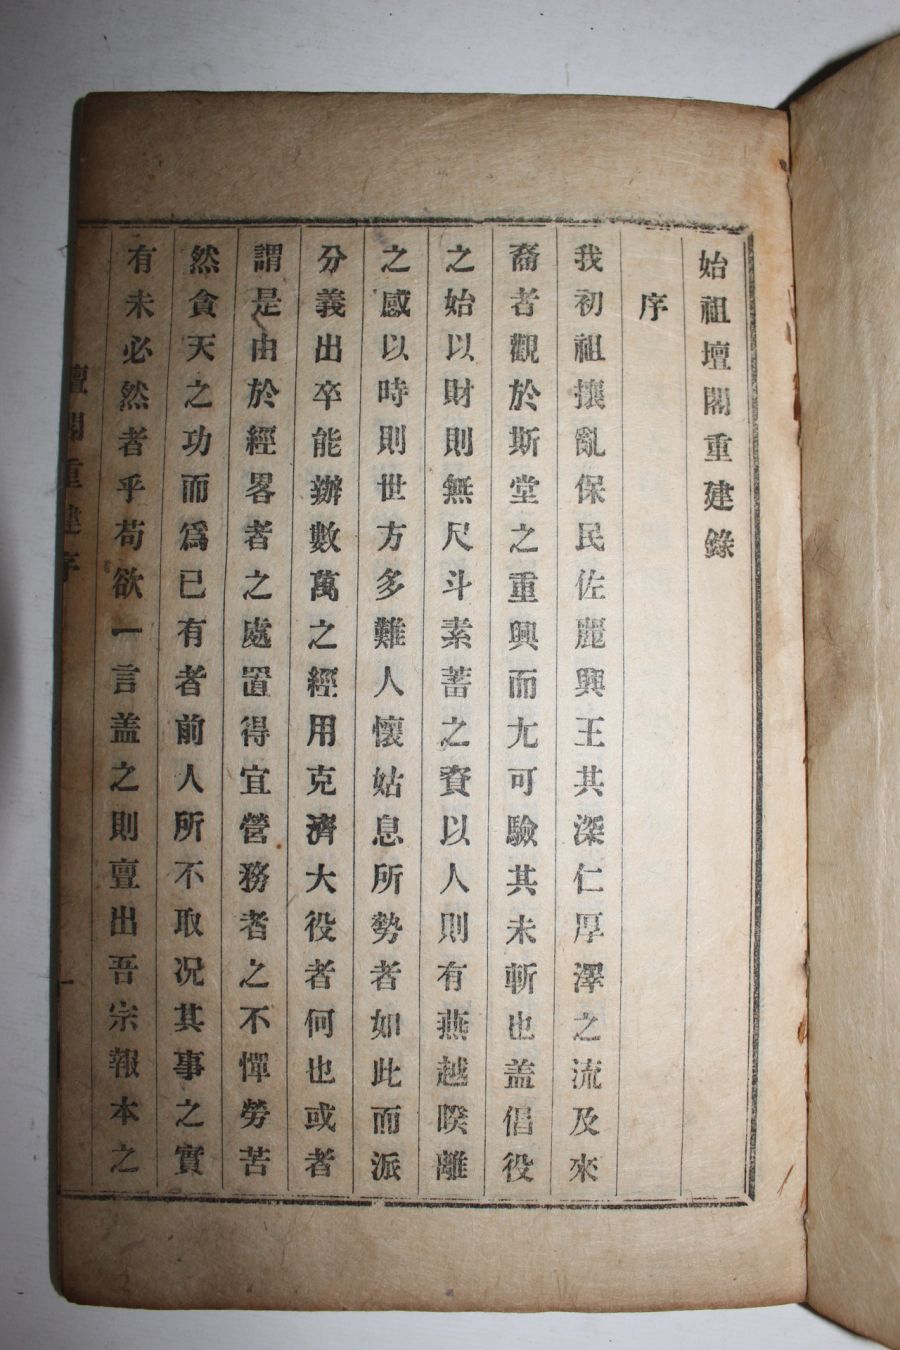 始祖壇閣重建錄
序
我初祖攘亂保民佐麗興王其深仁厚澤之流及來
裔者觀於斯堂之重興而尤可驗其未斬也盖倡役
之始以財則無尺斗素蓄之資以人則有燕越暌離
之感以時則世方多難人懷姑息所勢者如此而派
分義出卒能辦數萬之經用克濟大役者何也或者
謂是由於經畧者之處置得宜營務者之不憚勞苦
然貪天之功而爲已有者前人所不取况其事之實
有未必然者乎苟欲一言盖之則亶出吾宗報本之
壇閣重建序
一